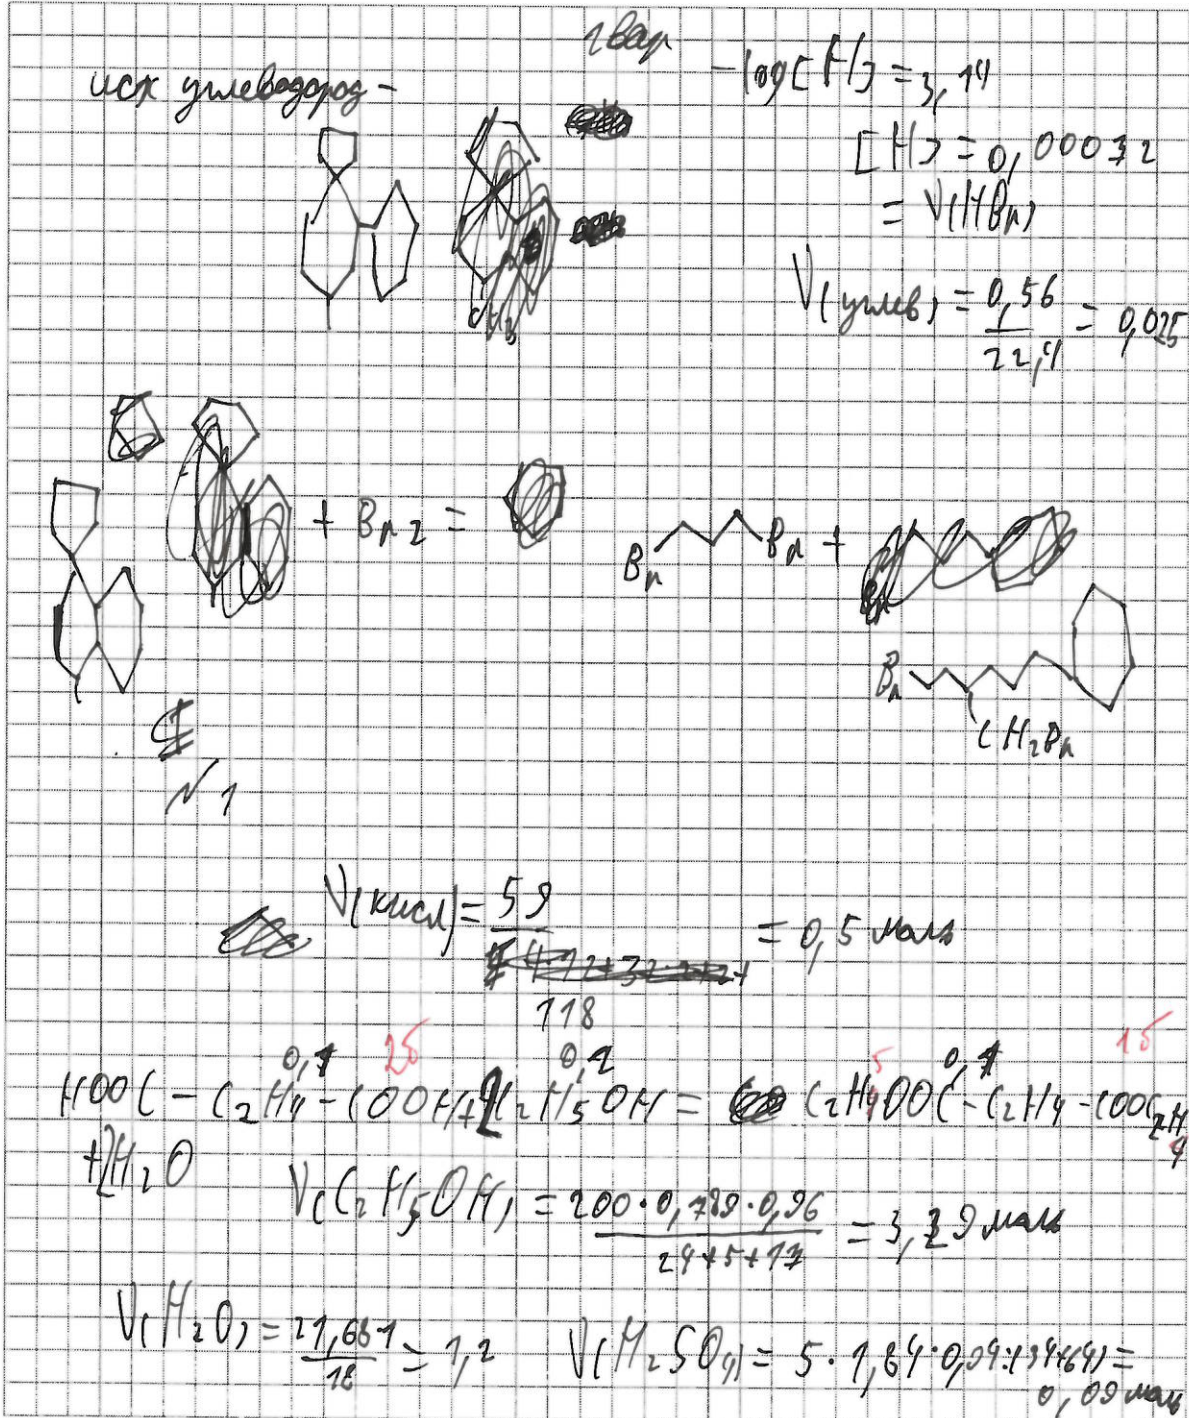 1 вар
исх углеводород -
-log[H] = 3,14
[H] = 0,00072
= ν(HBr)
ν(углев) = 0,56 / 22,4 = 0,025
+ Br2 =
Br Br +
Br
CH2Br
N 1
ν(кисл) = 59 / 118 = 0,5 моль
0,1 2б 0,2 5 0,1 1б
HOOC - C2H4 - COOH + 2C2H5OH = C2H4OOC - C2H4 - COOC2H4
+ 2H2O
ν(C2H5OH) = 200·0,789·0,96 / 24+5+17 = 3,29 моль
ν(H2O) = 21,661 / 18 = 1,2 ν(H2SO4) = 5·1,84·0,94:(34+64) =
0,09 моль